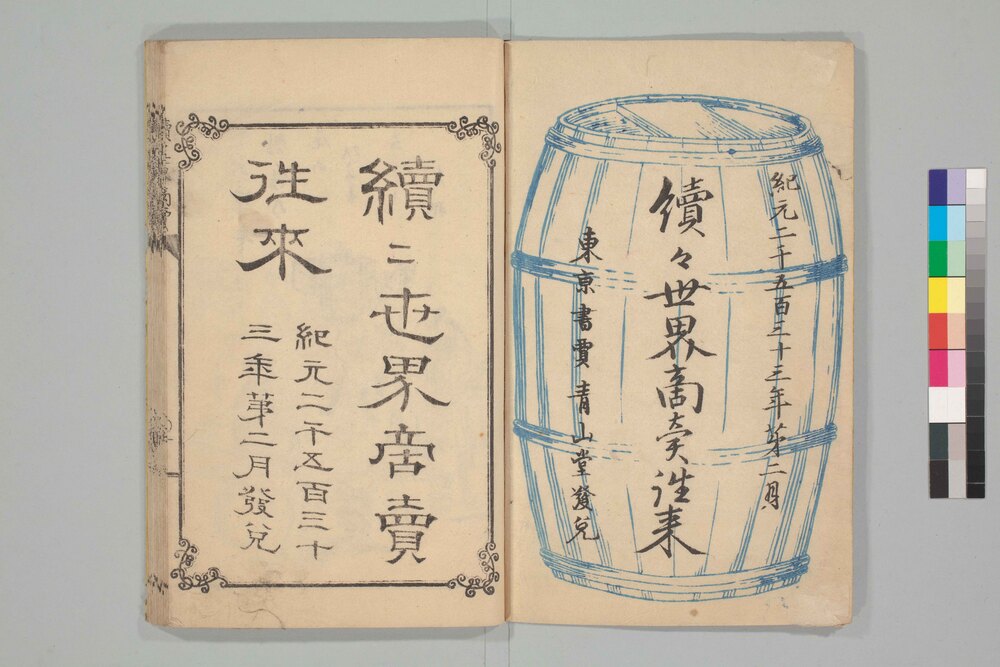 紀元二千五百三十三年第二月
續々世界商賣往来
東京書賈青山堂發兌
續〻世界商賣
往來
紀元二千五百三十
三年第二月發兌